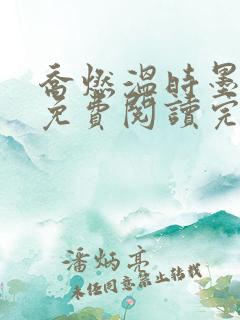 喬燃溫時墨
免費閱讀完
潘炳亮
未经同意禁止转载